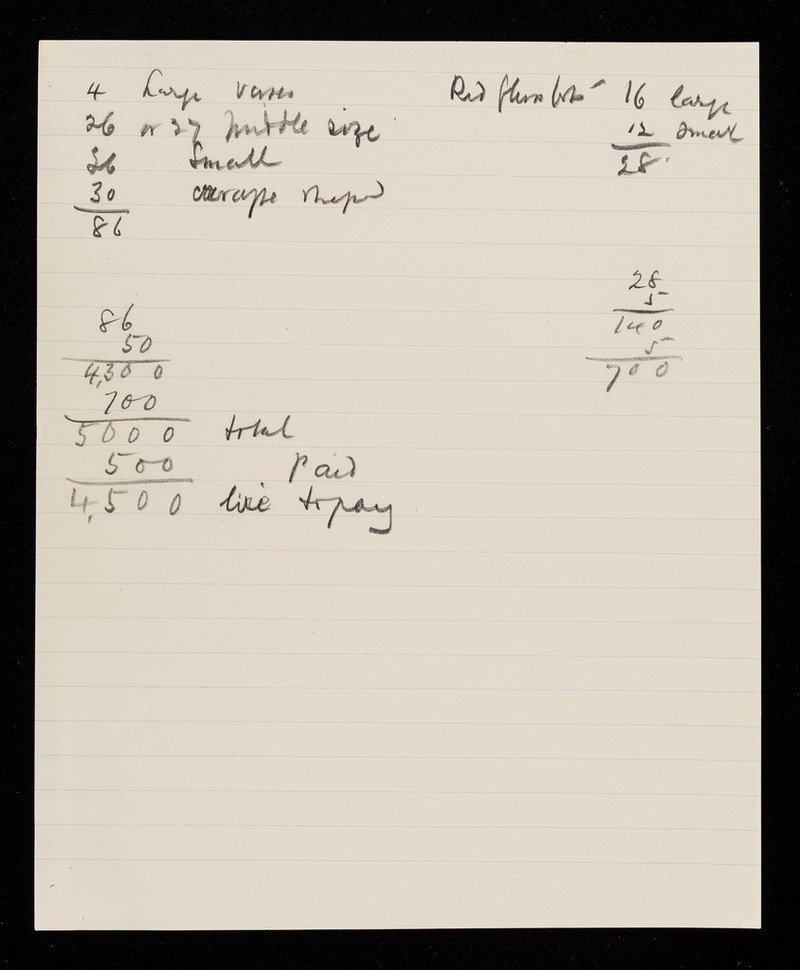 4 Large vases
26 or 27 middle size
26 Small
30 average shaped
86
Red glass 16 large
12 small
28
28
5
140
5
700
86
50
4,300
700
5000 total
500 Paid
4,500 to pay